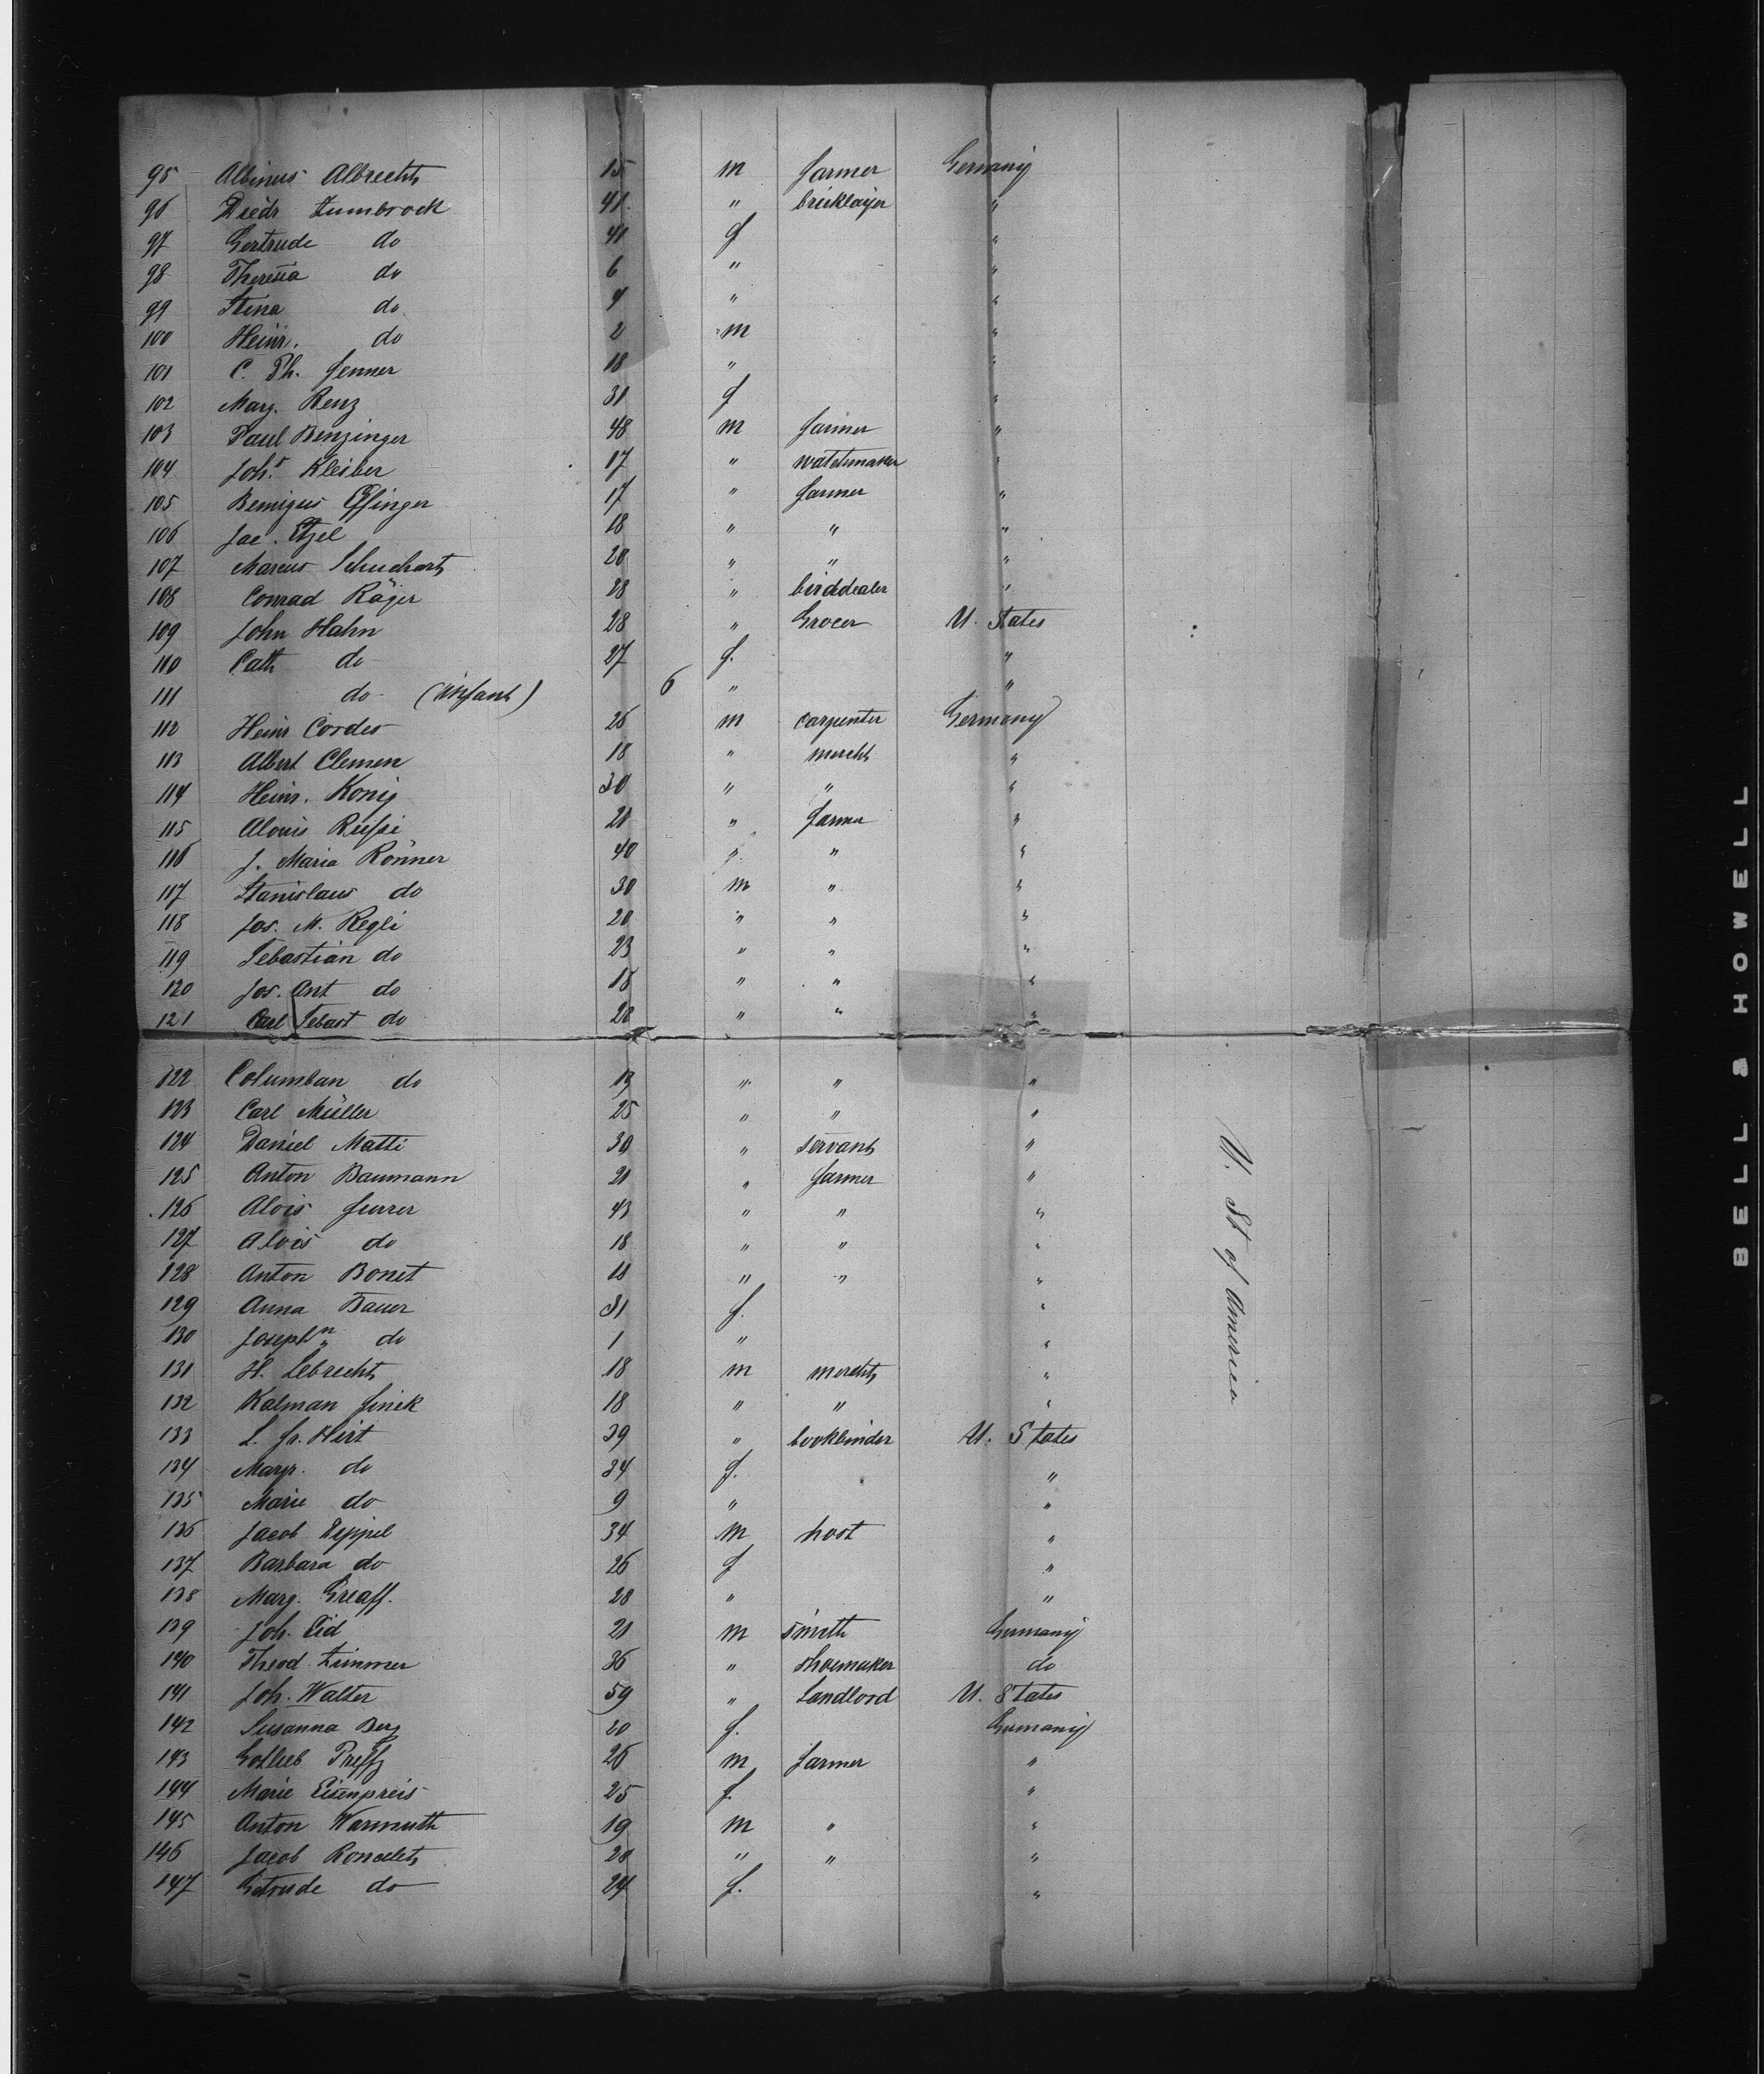 95 Albinus Albrecht 15 m farmer Germany
96 Diedr Zumbrock 41 " bricklayer "
97 Gertrude do 41 f "
98 Theresia do 6 " "
99 Stina do 4 " "
100 Heinr. do 2 m "
101 C. Ph. Jenner 18 " "
102 Marg. Renz 31 f "
103 Paul Benzinger 48 m farmer "
104 Joh.s Kleiber 17 " watchmaker "
105 Remigius Effinger 17 " farmer "
106 Jac. Etzel 18 " " "
107 Marcus Schuchart 20 " " "
108 Conrad Räger 28 " birddealer "
109 John Hahn 28 " Grocer U. States
110 Cath do 27 f. "
111 do (infant) 6 " "
112 Heinr Cordes 26 m carpenter Germany
113 Albert Clemen 18 " mercht "
114 Heinr. Konig 30 " " "
115 Alouis 21 " farmer "
116 J. Maria Rönner 40 " "
117 Stanislaus do 30 m " "
118 Jos. M. Regli 20 " " "
119 Sebastian do 23 " " "
120 Jos. Ant do 18 " " "
121 Carl Sebast do 28 " " "
122 Columban do 19 " " "
123 Carl Müller 25 " " "
124 Daniel Matti 30 " servant "
125 Anton Baumann 21 " farmer "
126 Alois Furrer 43 " " "
127 Alois do 18 " " "
128 Anton Bonet 18 " " "
129 Anna Bauer 31 f. "
130 Josephn do 1 " "
131 H. Lebrecht 18 m mercht "
132 Kalman Jinek 18 " " "
133 L. Fr. Hirt 39 " bookbinder U. States
134 Margr. do 34 f. "
135 Marie do 9 " "
136 Jacob Deppel 34 m host "
137 Barbara do 26 f "
138 Marg. Greaff. 28 " "
139 Joh. Eid 21 m smith Germany
140 Theod. Zimmer 36 " shoemaker do
141 Joh. Walter 59 " Landlord U. States
142 Susanna Berg 20 f. Germany
143 Gotlieb 26 m farmer "
144 Marie Eisenpreis 25 f "
145 Anton Warmuth 19 m " "
146 Jacob Roncelet 20 " " "
147 Getrude do 24 f. "
U. St of America
BELL & HOWELL